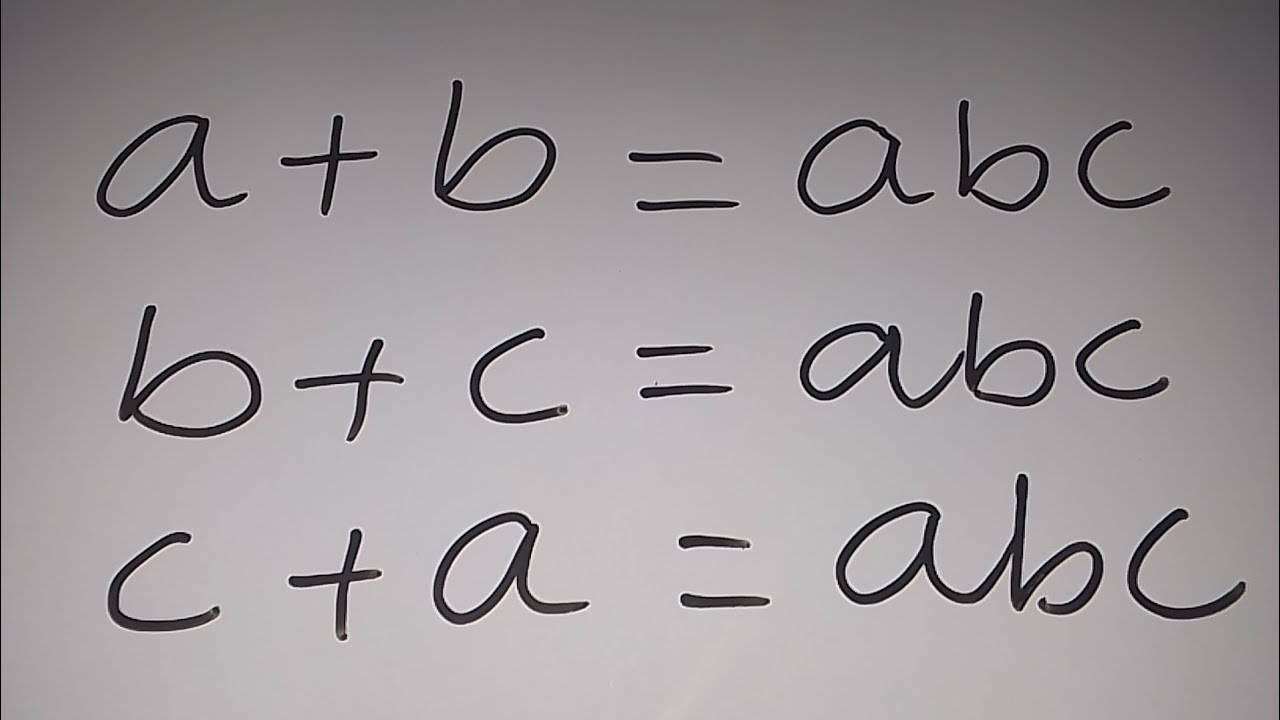 a + b = abc
b + c = abc
c + a = abc